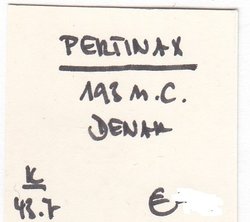 PERTINAX
193 M.C.
DENAR
K
43.7
€